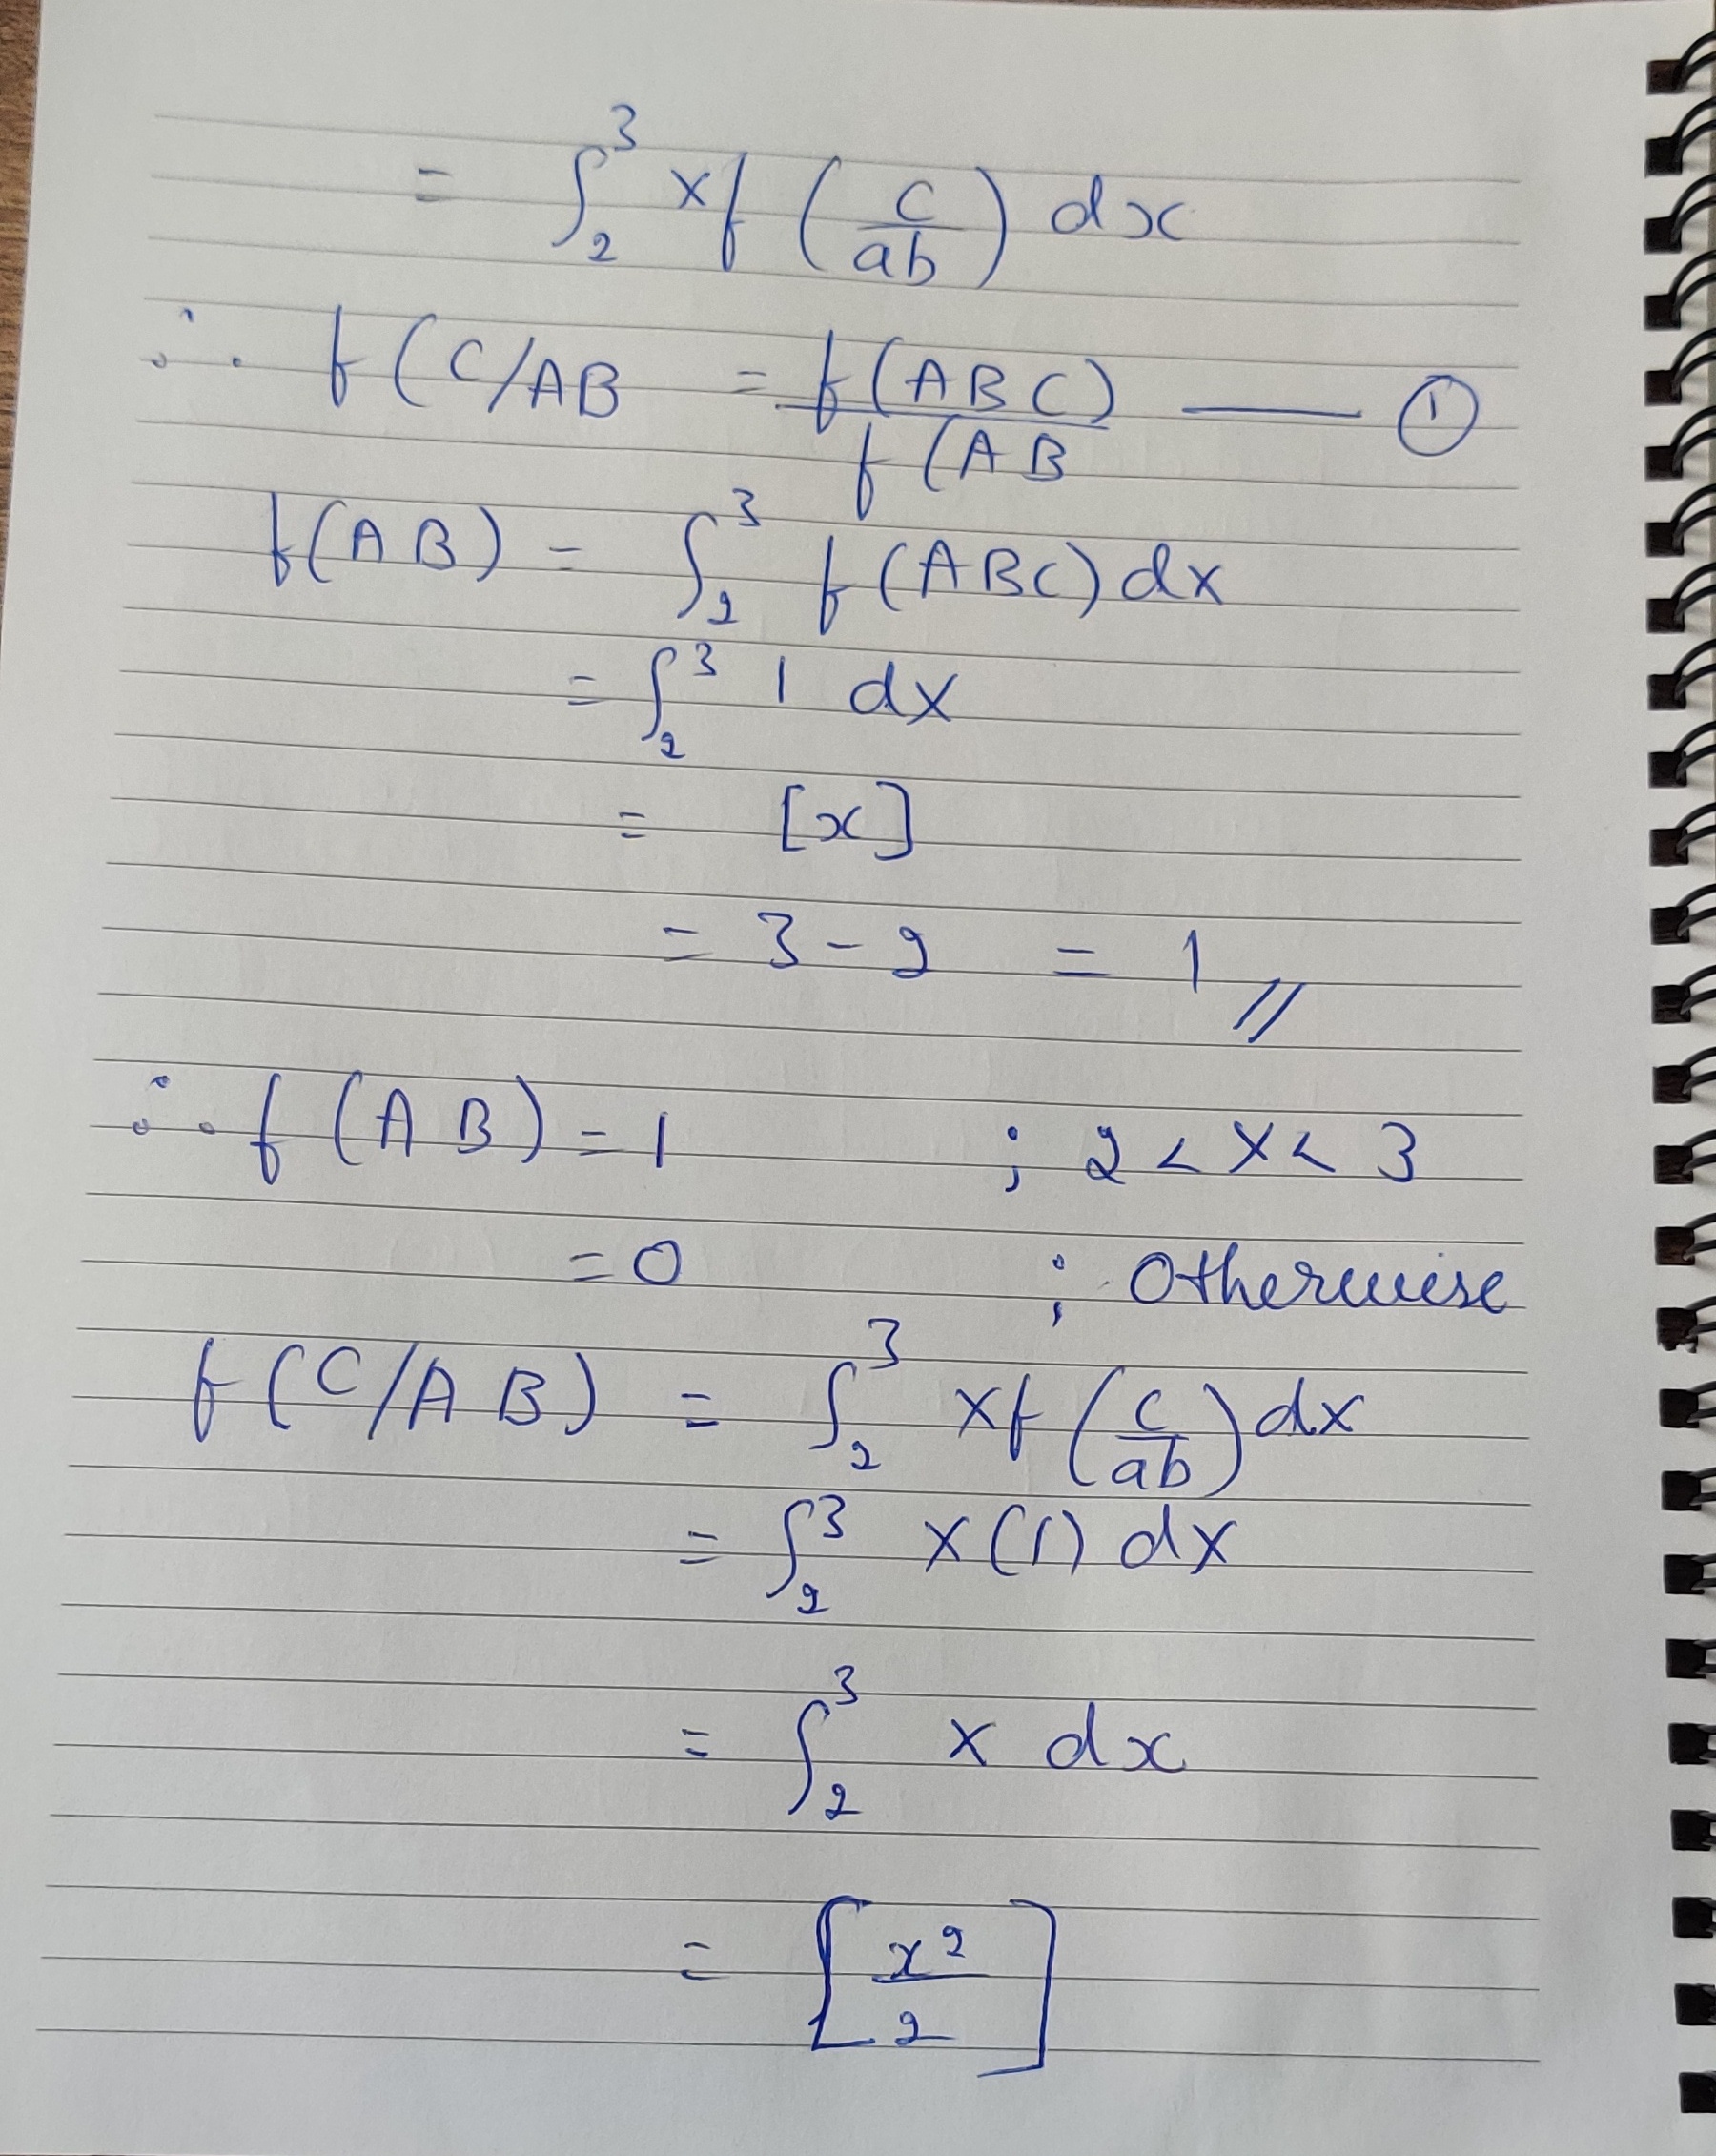 = ∫₂³ xf (c/ab) dx
∴ f(C/AB = f(ABC) / f(AB —— ①
f(AB) = ∫₂³ f(ABC)dx
= ∫₂³ 1 dx
= [x]
= 3 - 2 = 1 //
∴ f(AB) = 1 ; 2 < x < 3
= 0 ; Otherwise
f(C/AB) = ∫₂³ xf (c/ab) dx
= ∫₂³ x(1) dx
= ∫₂³ x dx
= [x²/2]